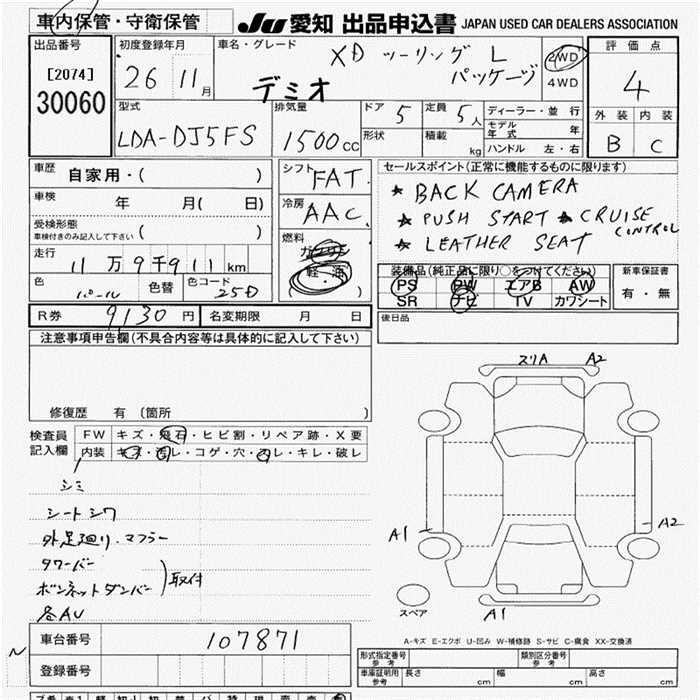 車内保管・守衛保管
JU 愛知 出品申込書 JAPAN USED CAR DEALERS ASSOCIATION
出品番号
[2074]
30060
初度登録年月
26 11月
車名・グレード
デミオ
XD ツーリング L
パッケージ
2WD
4WD
評価点
4
外装 内装
B C
型式
LDA-DJ5FS
排気量
1500cc
ドア 5
形状
定員 5人
積載 kg
ディーラー・並行
モデル年式 年
ハンドル 左・右
車歴 自家用・( )
車検 年 月( 日)
受検形態
車検付きのみ記入して下さい ( )
走行 11万9千911km
色 パール
色替
色コード 25D
シフト FAT
冷房 AAC
燃料
ガソリン
(軽・油)
セールスポイント(正常に機能するものに限ります)
★ BACK CAMERA
★ PUSH START ★ CRUISE CONTROL
★ LEATHER SEAT
装備品(純正品に限り○をつけてください)
PS PW エアB AW
SR ナビ TV カワシート
新車保証書
有・無
R券 9130円
名変期限 月 日
後日品
注意事項申告欄(不具合内容等は具体的に記入して下さい)
修復歴 有 (箇所 )
検査員記入欄
FW キズ・飛石・ヒビ割・リペア跡・X要
内装 キズ・汚レ・コゲ・穴・スレ・キレ・破レ
シミ
シートシワ
外足廻り.マフラー
タワーバー
ボンネットダンパー
取付
各AU
スリA A2
A1
A2
スペア
A1
A-キズ E-エクボ U-凹み W-補修跡 S-サビ C-腐食 XX-交換済
車台番号 107871
登録番号
N
形式指定番号 参考
類別区分番号 参考
車庫証明用 参考
長さ cm 幅 cm 高さ cm